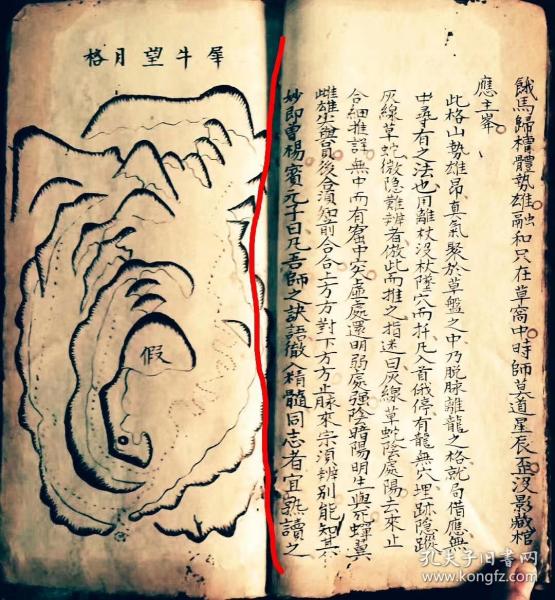 餓馬歸槽體勢雄融和只在草窩中時師莫道星辰歪沒影藏棺
應主峯
此格山勢雄昂真氣聚於草盤之中乃脫脉離龍之格就局借應無
中尋有之法也用離杖沒杖墜穴而扦凡入首俄停有龍無穴埋跡隱蹤
灰線草蛇微隐難辨者倣此而推之指迷曰灰線草蛇陰處陽云來止
合細推詳無中而有窟中突虛處還明弱處強陰暗陽明生與死蟬翼
雌雄尖與員後合須知前合合上方方對下方方止脉來宗須辨別能知其
妙即曾楊賓元子曰凡吾師之訣語徹入精髓同志者宜熟讀之
犀牛望月格
假
孔夫子旧书网
kongfz.com